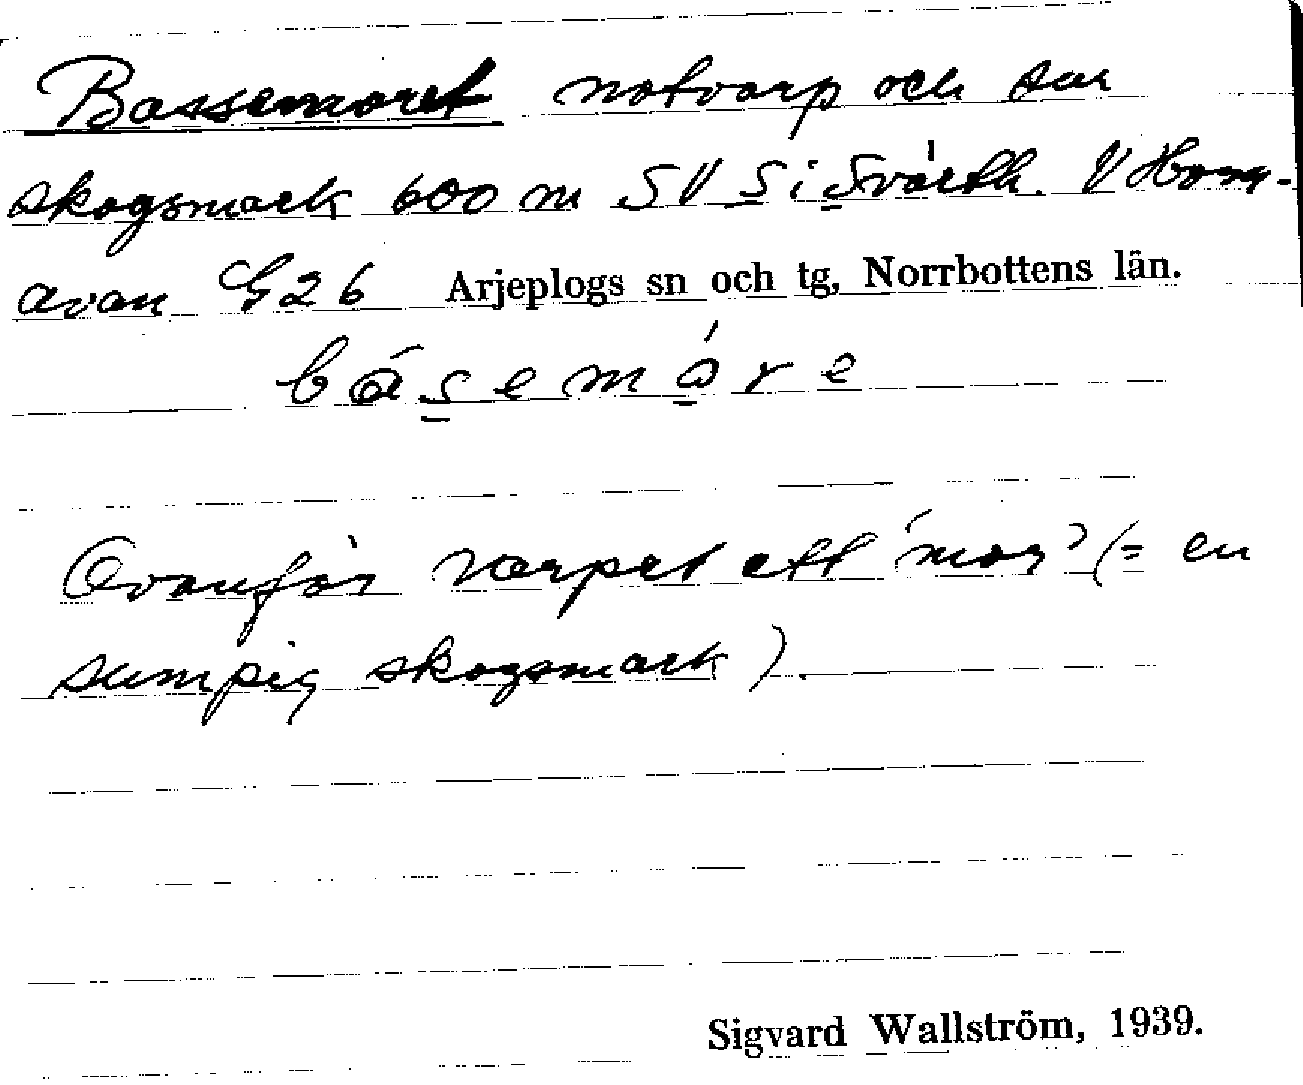 Bassemoret notvarp och sur
skogsmark 600 m SV Horn-
avan G26 Arjeplogs sn och tg, Norrbottens län.
básemóre
Ovanför varpet ett 'mor' (= en
sumpig skogsmark).
Sigvard Wallström, 1939.